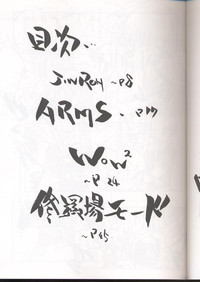 目次…
JINROH ~P8
ARMS. ~P17
WOW²
~P24
修羅場モード
~P45